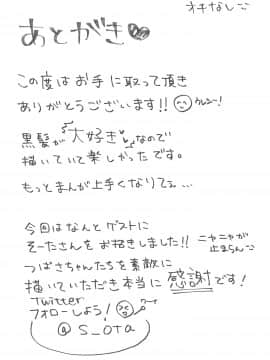 オチなし
あとがき
この度はお手に取って頂き
ありがとうございます!!
ウレシー!
黒髪が大好きなので
描いていて楽しかったです。
もっとまんが上手くなりてぇ…
今回はなんとゲストに
そーたさんをお招きしました!!
ニヤニヤが
止まらん
つばさちゃんたちを素敵に
描いていただき本当に感謝です!
Twitter
フォローしよう!
@S_OTA